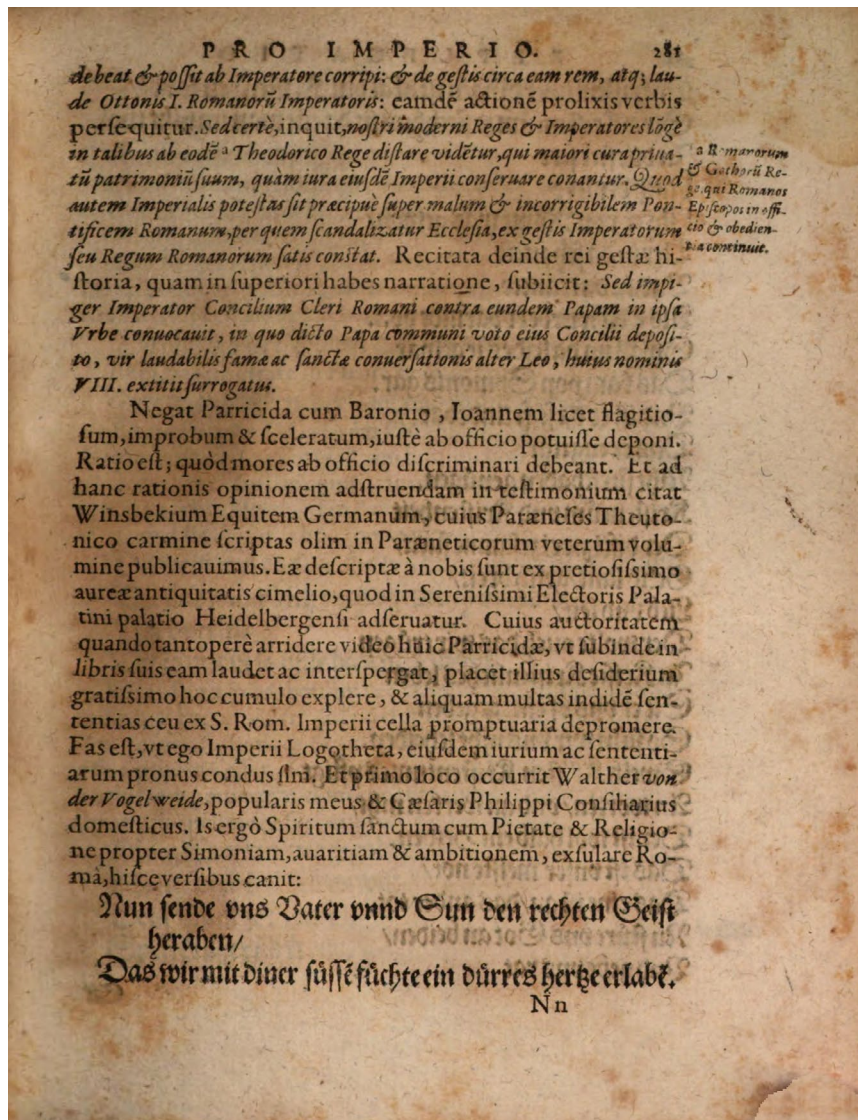 PRO IMPERIO. 281
debeat & poſſit ab Imperatore corripi: & de geſtis circa eam rem, atq; lau-
de Ottonis I. Romanorũ Imperatoris: eamdẽ actionẽ prolixis verbis
perſequitur. Sed certè, inquit, noſtri moderni Reges & Imperatores lõgè
in talibus ab eodẽ ᵃ Theodorico Rege diſtare vidẽtur, qui maiori cura priua-
tũ patrimoniũ ſuum, quàm iura eiuſdẽ Imperii conſeruare conantur. Quod
autem Imperialis poteſtas ſit præcipuè ſuper malum & incorrigibilem Pon-
tificem Romanum, per quem ſcandalizatur Eccleſia, ex geſtis Imperatorum
ſeu Regum Romanorum ſatis conſtat. Recitata deinde rei geſtæ hi-
ſtoria, quam in ſuperiori habes narratione, ſubiicit: Sed impi-
ger Imperator Concilium Cleri Romani contra eundem Papam in ipſa
Vrbe conuocauit, in quo dicto Papa communi voto eius Concilii depoſi-
to, vir laudabilis famæ ac ſanctæ conuerſationis alter Leo, huius nominis
VIII. extitit ſurrogatus.
a Romanorum
& Gothorũ Re-
ge qui Romanos
Epiſcopos in offi-
cio & obedien-
tia continuit.
Negat Parricida cum Baronio, Ioannem licet flagitio-
ſum, improbum & ſceleratum, iuſtè ab officio potuiſſe deponi.
Ratio eſt; quòd mores ab officio diſcriminari debeant. Et ad
hanc rationis opinionem adſtruendam in teſtimonium citat
Winsbekium Equitem Germanum, cuius Paræneſes Theuto-
nico carmine ſcriptas olim in Paræneticorum veterum volu-
mine publicauimus. Eæ deſcriptæ à nobis ſunt ex pretioſiſſimo
aureæ antiquitatis cimelio, quod in Sereniſſimi Electoris Pala-
tini palatio Heidelbergenſi adſeruatur. Cuius auctoritatem
quando tantoperè arridere video huic Parricidæ, vt ſubinde in
libris ſuis eam laudet ac interſpergat, placet illius deſiderium
gratiſſimo hoc cumulo explere, & aliquam multas indidẽ ſen-
tentias ceu ex S. Rom. Imperii cella promptuaria depromere.
Fas eſt, vt ego Imperii Logotheta, eiuſdem iurium ac ſententi-
arum pronus condus ſim. Et primo loco occurrit Walther von
der Vogelweide, popularis meus & Cæſaris Philippi Conſiliarius
domeſticus. Is ergò Spiritum ſanctum cum Pietate & Religio-
ne propter Simoniam, auaritiam & ambitionem, exſulare Ro-
mâ, hiſce verſibus canit:
Nun ſende vns Vater vnnd Sun den rechten Geiſt
heraben/
Das wir mit diner ſüſſẽ füchte ein dürres hertze erlabẽ.
Nn